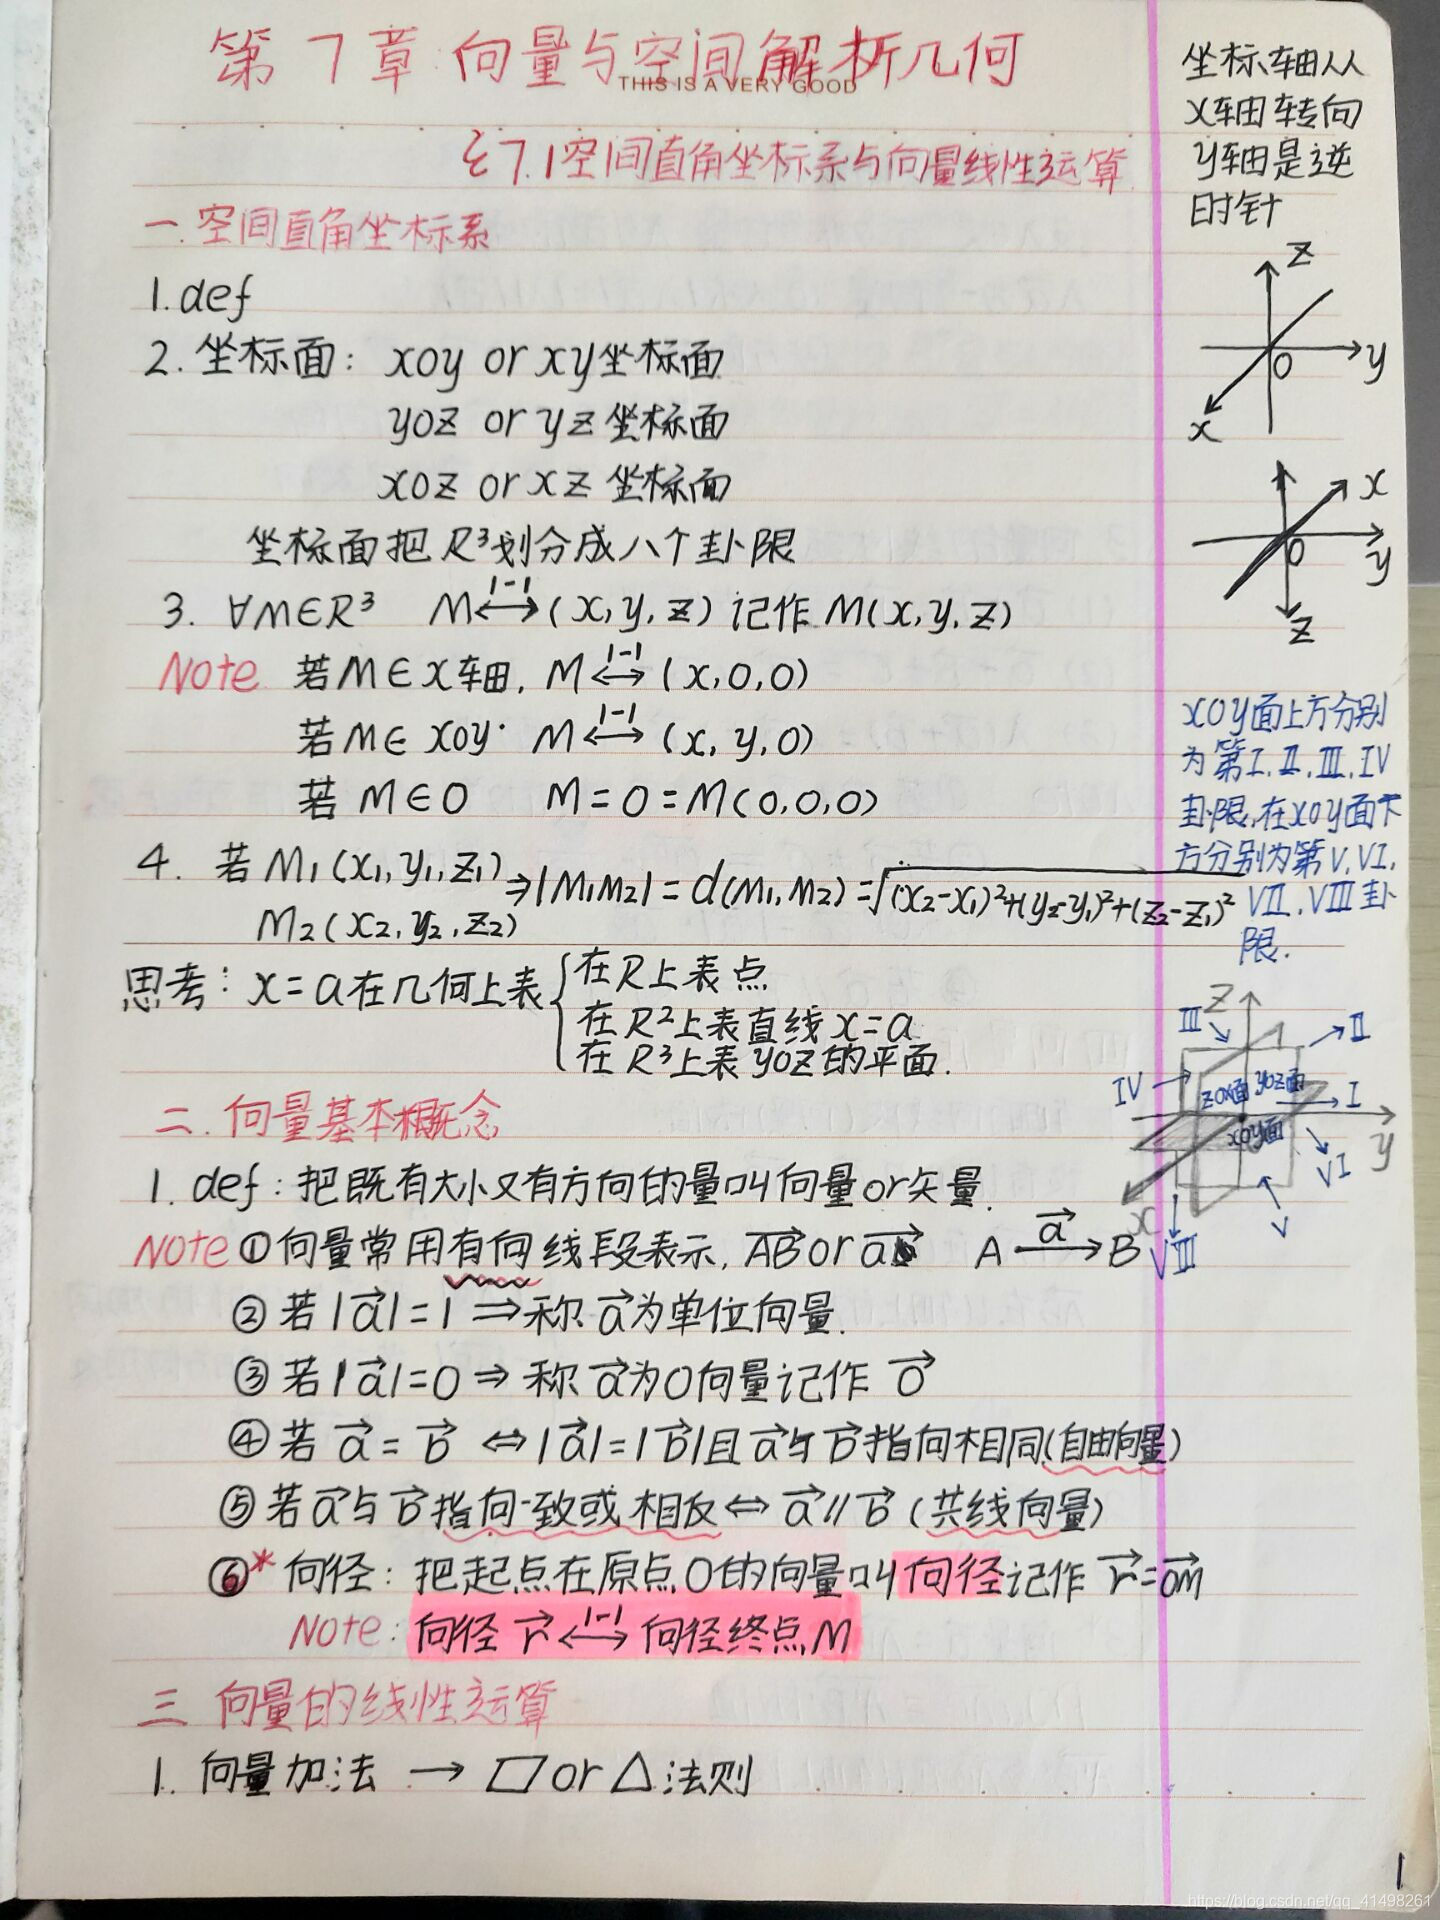 第7章 向量与空间解析几何
THIS IS A VERY GOOD
§7.1 空间直角坐标系与向量线性运算
一. 空间直角坐标系
1. def
2. 坐标面: xoy or xy坐标面
yoz or yz 坐标面
xoz or xz 坐标面
坐标面把 R³划分成八个卦限
3. ∀M∈R³ M⟷(1-1)(x, y, z) 记作 M(x, y, z)
Note 若M∈x轴, M⟷(1-1)(x, 0, 0)
若M∈ xoy. M⟷(1-1)(x, y, 0)
若 M∈O M=O=M(0,0,0)
4. 若 M₁(x₁, y₁, z₁) ⇒|M₁M₂|=d(M₁, M₂)=√(x₂-x₁)²+(y₂-y₁)²+(z₂-z₁)²
M₂(x₂, y₂, z₂)
思考: x=a在几何上表{在R上表点
在R²上表直线x=a
在R³上表yoz的平面.
二. 向量基本概念
1. def: 把既有大小又有方向的量叫向量or矢量.
Note ①向量常用有向线段表示, AB⃗ or a⃗ A a⃗→B
② 若|a⃗|=1 ⇒称 a⃗为单位向量.
③ 若|a⃗|=0 ⇒ 称 a⃗为0向量记作 0⃗
④ 若 a⃗ = b⃗ ⇔|a⃗|=|b⃗|且 a⃗与b⃗指向相同(自由向量)
⑤ 若a⃗与b⃗指向一致或相反⇔ a⃗∥b⃗ (共线向量)
⑥* 向径: 把起点在原点O的向量叫向径记作 r⃗=OM⃗
Note: 向径 r⃗ ⟷(1-1) 向径终点M
三 向量的线性运算
1. 向量加法 → ▱ or △法则
坐标轴从
x轴转向
y轴是逆
时针
z
O
y
x
x
O
y
z
xoy面上方分别
为第I, II, III, IV
卦限,在xoy面下
方分别为第V, VI,
VII, VIII卦
限.
z
III
II
IV
zox面 yoz面
I
xoy面
y
VI
x
V
VIII
1
https://blog.csdn.net/qq_41498261